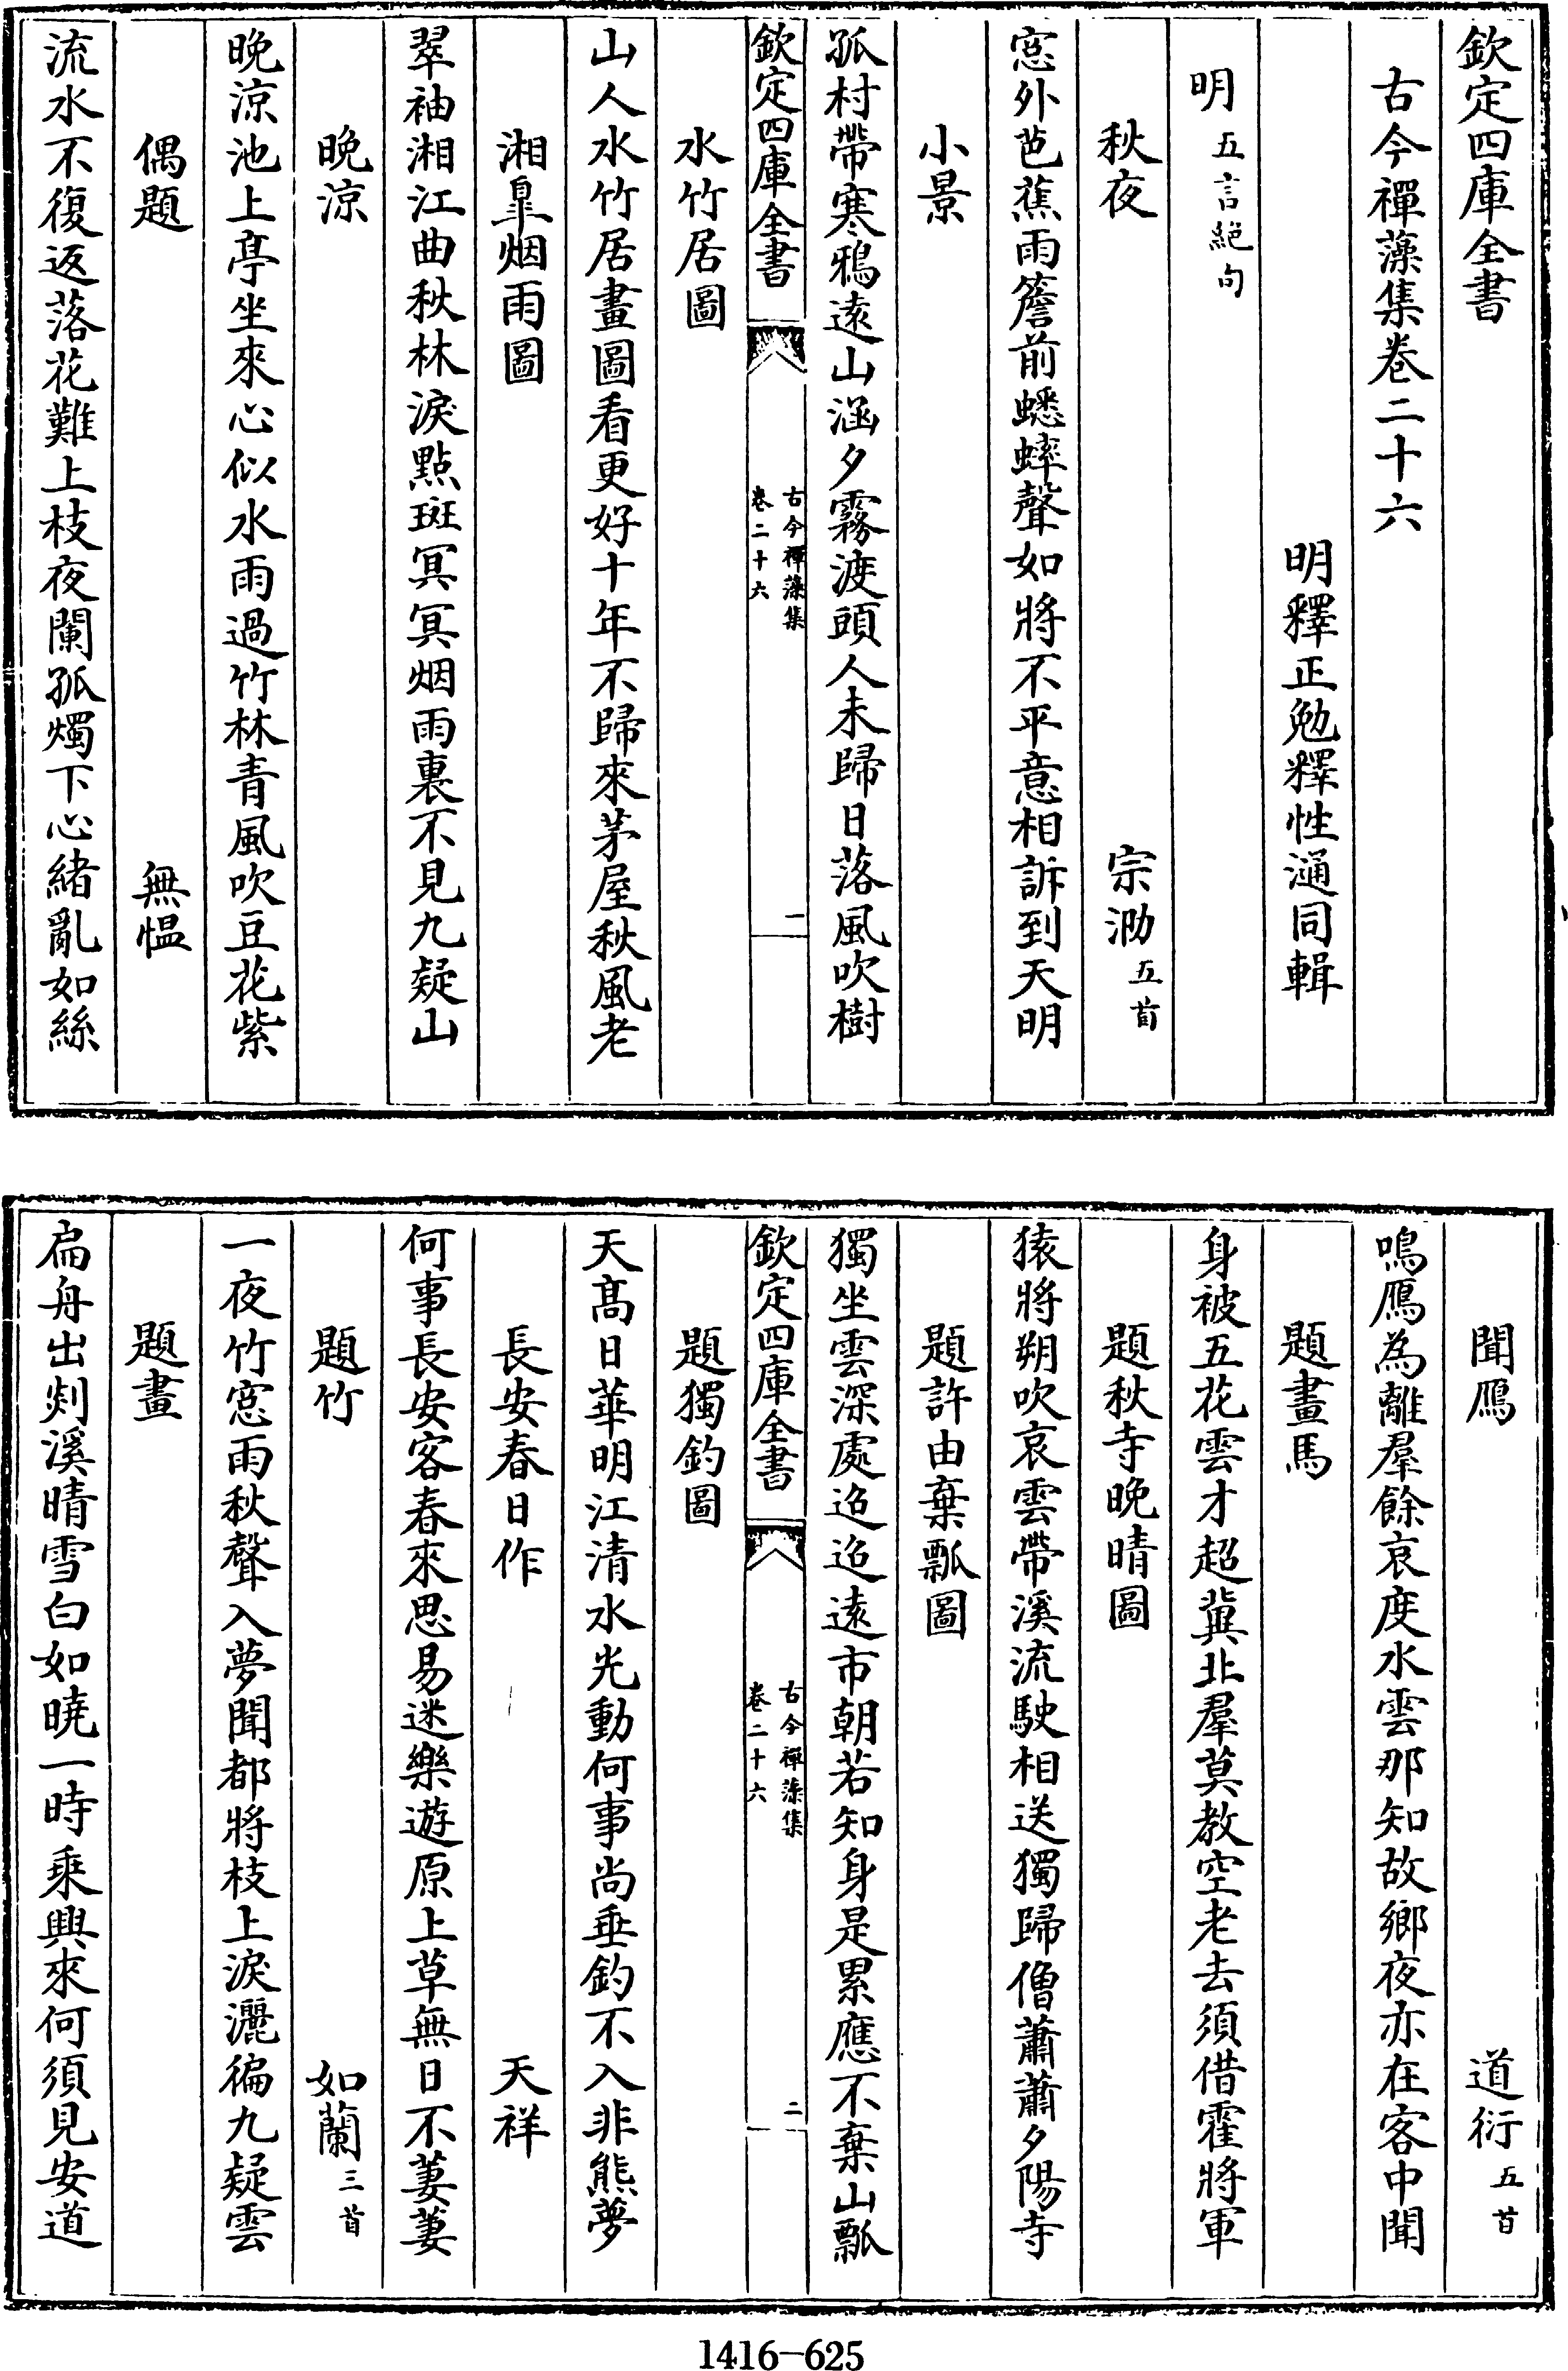 欽定四庫全書
古今禪藻集卷二十六
明釋正勉釋性㵀同輯
明五言絶句
秋夜 宗泐五首
窓外芭蕉雨簷前蟋蟀聲如將不平意相訴到天明
小景
孤村帶寒鴉逺山涵夕霧渡頭人未歸日落風吹樹
欽定四庫全書
古今禪藻集
卷二十六
一
水竹居圖
山人水竹居畫圖看更好十年不歸來茅屋秋風老
湘臯烟雨圖
翠袖湘江曲秋林淚點斑冥冥烟雨裏不見九疑山
晩涼
晩涼池上亭坐來心似水雨過竹林青風吹豆花紫
偶題 無愠
流水不復返落花難上枝夜闌孤燭下心緒亂如絲
聞鴈 道衍五首
鳴鴈為離羣餘哀度水雲那知故鄉夜亦在客中聞
題畫馬
身被五花雲才超冀北羣莫教空老去須借霍將軍
題秋寺晚晴圖
猿將朔吹哀雲帶溪流駛相送獨歸僧蕭蕭夕陽寺
題許由棄瓢圖
獨坐雲深處迢迢逺市朝若知身是累應不棄山瓢
欽定四庫全書
古今禪藻集
卷二十六
二
題獨釣圖
天髙日華明江清水光動何事尚垂釣不入非熊夢
長安春日作 天祥
何事長安客春來思易迷樂遊原上草無日不萋萋
題竹 如蘭三首
一夜竹窓雨秋聲入夢聞都將枝上淚灑徧九疑雲
題畫
扁舟出剡溪晴雪白如曉一時乘興來何須見安道
1416-625